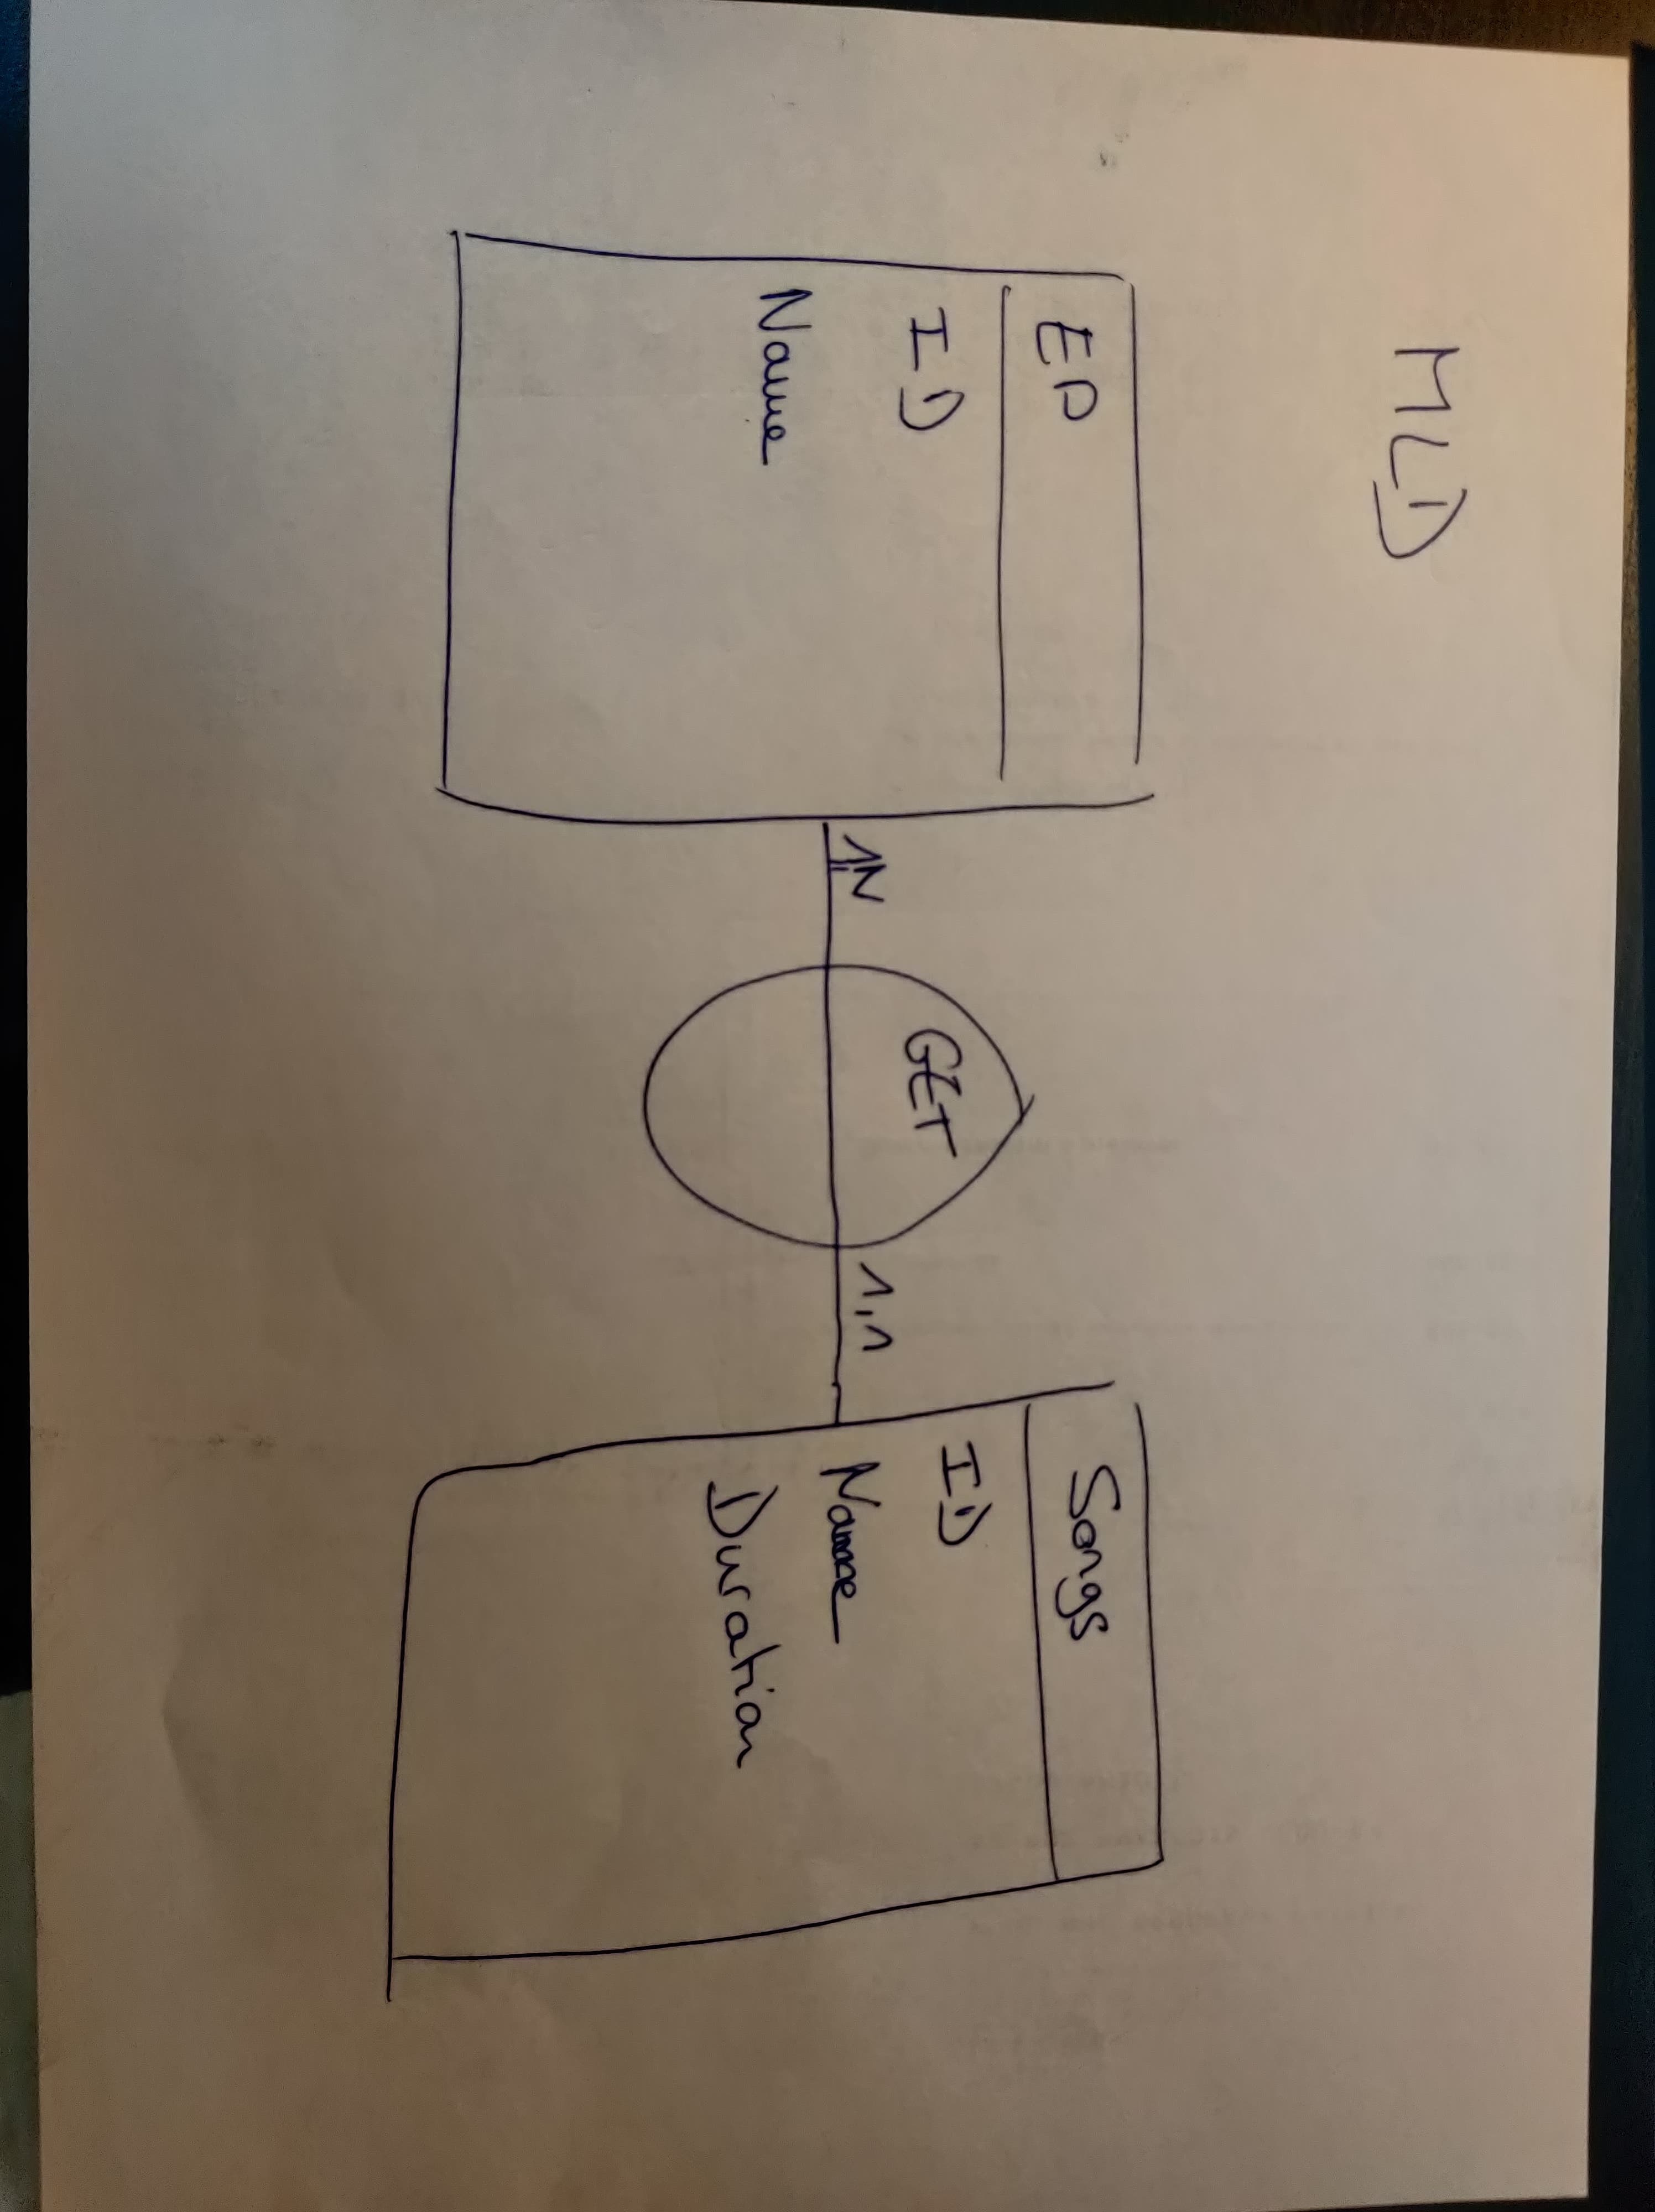 MLD
EP
ID
Name
1,N
GET
1,1
Songs
ID
Name
Duration